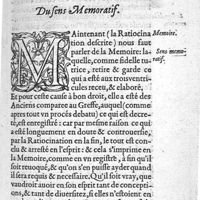 Du sens Memoratif.
MAintenant (la Ratiocina
tion descrite) nous faut
parler de la Memoire: la-
quelle, comme fidelle nu-
trice, retire & garde ce
qui a esté aux trois ventri-
cules receu, & elaboré,
Memoire.
Sens memo-
ratif.
Et pour ceste cause à bon droit, elle a esté des
Anciens comparee au Greffe, auquel (comme
apres tout procés debatu) ce qui est de decre-
té, est enregistré: car par mesme raison ce qui
a esté longuement en doute & controuerse,
par la Ratiocination en la fin, le tout est con-
clu & arresté en l'esprit: & cela s'imprime en
la Memoire, comme en vn registre, à fin qu'il
soit reuoqué, & qu'on s'en puisse ayder quand
il sera requis & necessaire. Qu'il soit vray, que
vaudroit auoir en son esprit tant de concepti-
ons, & tant de diuersitez, si elles n'estoient en